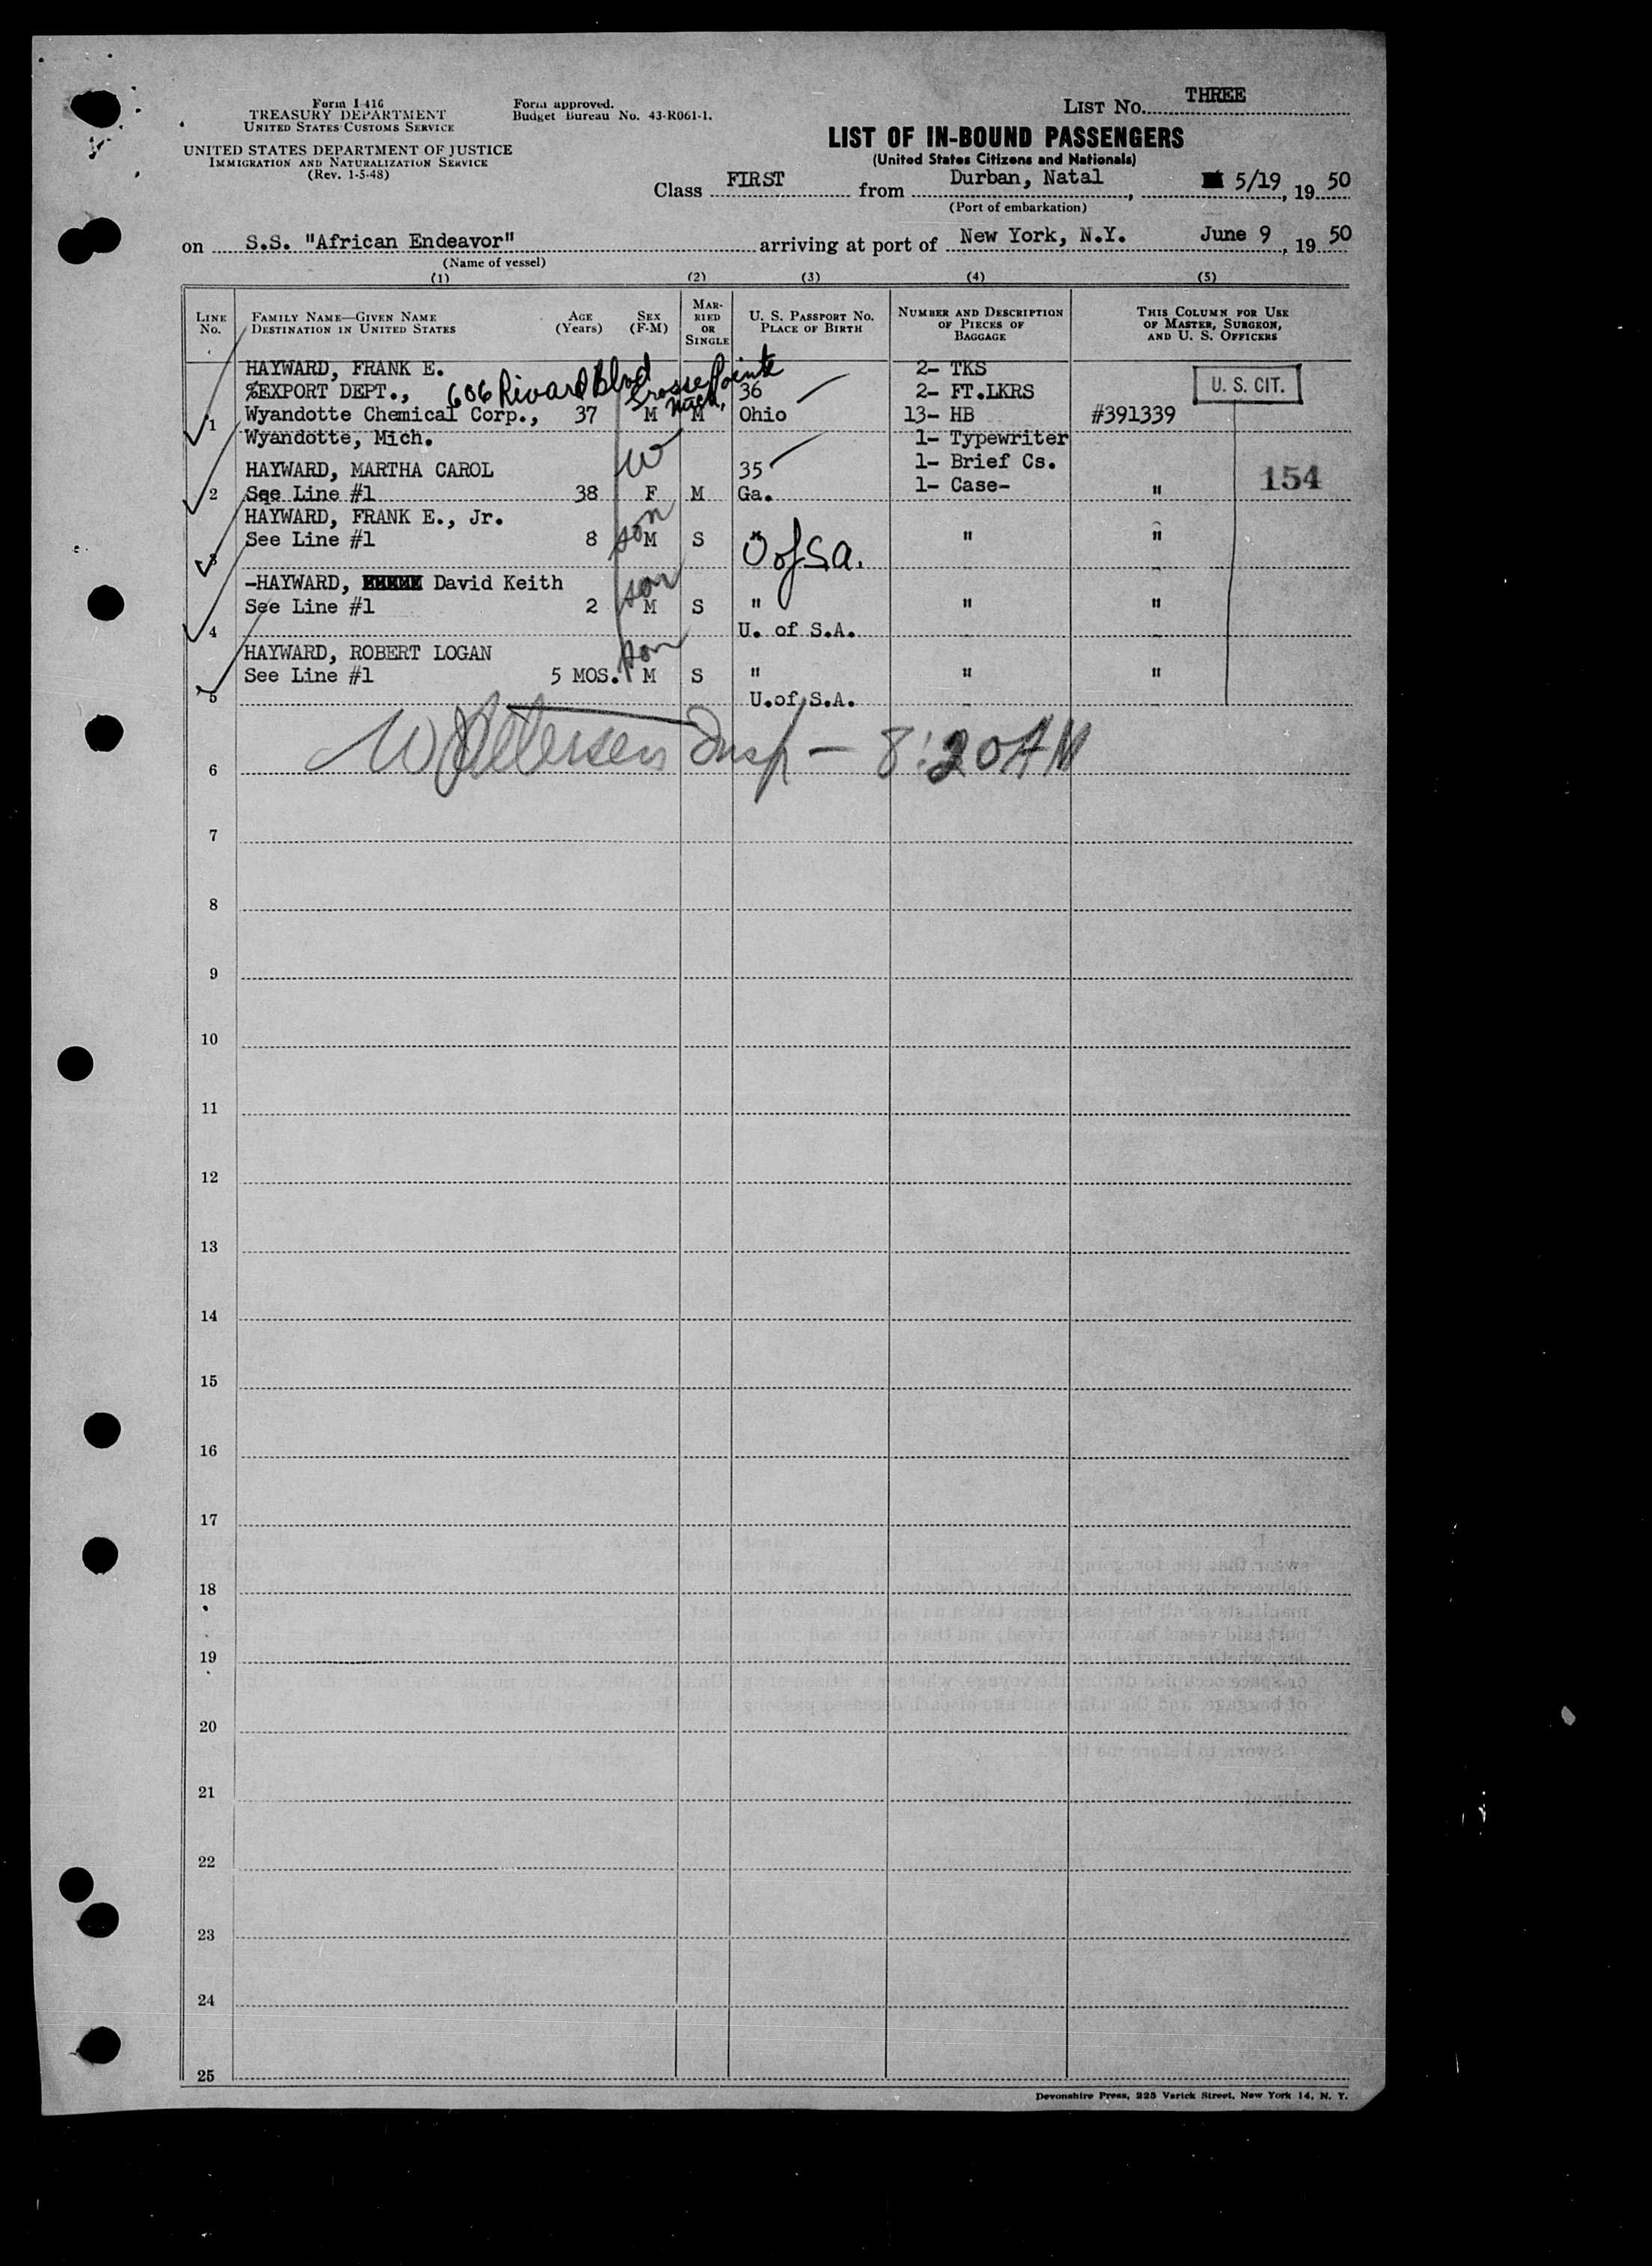 Form I-416
TREASURY DEPARTMENT
UNITED STATES CUSTOMS SERVICE
UNITED STATES DEPARTMENT OF JUSTICE
IMMIGRATION AND NATURALIZATION SERVICE
(Rev. 1-5-48)
Form approved.
Budget Bureau No. 43-R061-1.
LIST NO. THREE
LIST OF IN-BOUND PASSENGERS
(United States Citizens and Nationals)
Class FIRST from Durban, Natal, 5/19, 19 50
(Port of embarkation)
on S.S. "African Endeavor" arriving at port of New York, N.Y. June 9, 19 50
(Name of vessel)
(1) (2) (3) (4) (5)
LINE NO. FAMILY NAME—GIVEN NAME DESTINATION IN UNITED STATES AGE (Years) SEX (F-M) MARRIED OR SINGLE U. S. PASSPORT NO. PLACE OF BIRTH NUMBER AND DESCRIPTION OF PIECES OF BAGGAGE THIS COLUMN FOR USE OF MASTER, SURGEON, AND U. S. OFFICERS
HAYWARD, FRANK E. 2- TKS
%EXPORT DEPT., 606 Rivard Blvd Grosse Pointe Mich. 36 2- FT.LKRS U. S. CIT.
1 Wyandotte Chemical Corp., 37 M M Ohio 13- HB #391339
Wyandotte, Mich. 1- Typewriter
HAYWARD, MARTHA CAROL W 35 1- Brief Cs.
2 See Line #1 38 F M Ga. 1- Case- " 154
HAYWARD, FRANK E., Jr. son
3 See Line #1 8 M S " U of S.A. " "
-HAYWARD, David Keith son
See Line #1 2 M S " " "
4 U. of S.A.
HAYWARD, ROBERT LOGAN son
See Line #1 5 MOS. M S " " "
5 U.of S.A.
W Petersen Insp - 8:20 AM
6
7
8
9
10
11
12
13
14
15
16
17
18
19
20
21
22
23
24
25
Devonshire Press, 225 Varick Street, New York 14, N. Y.